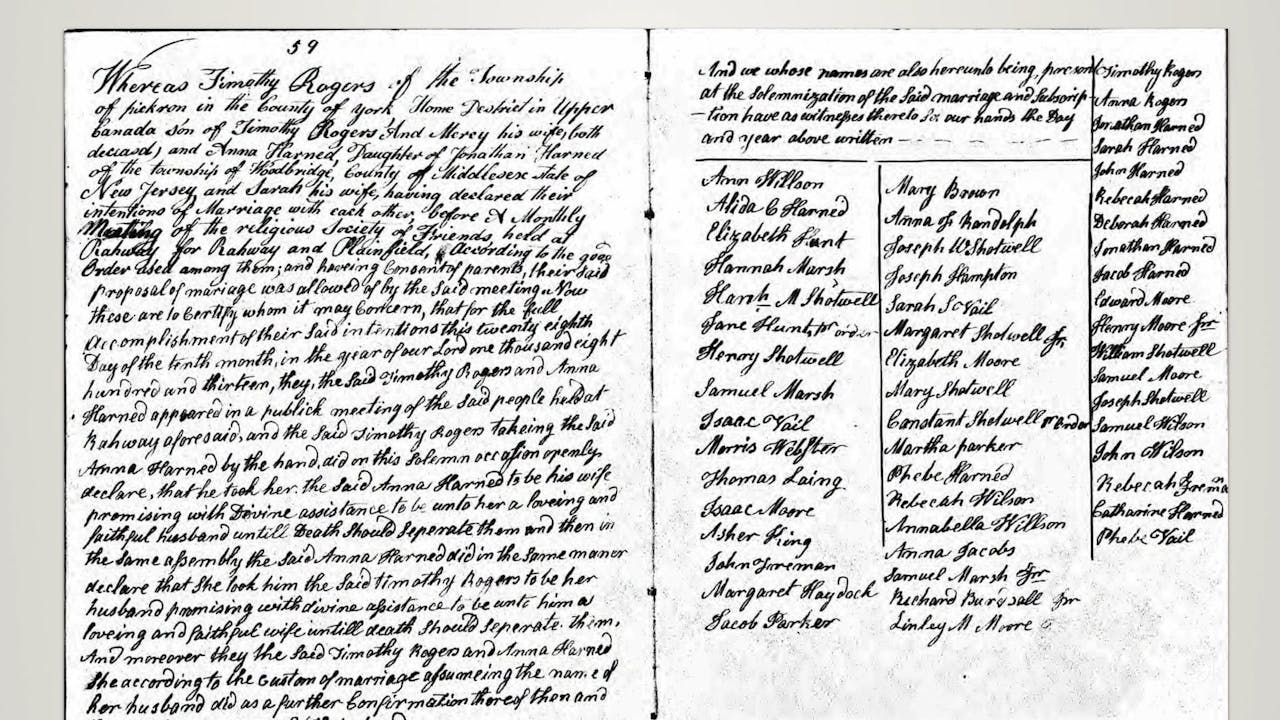 59
Whereas Timothy Rogers of the Township
of pickron in the County of york Home Destrict in Upper
Canada son of Timothy Rogers And Mercy his wife, both
deceasd; and Anna Harned, Daughter of Jonathan Harned
of the township of Woodbridge, County of Middlesex state of
New Jersey and Sarah his wife, having declared their
intentions of Marriage with each other, before A Monthly
Meeting of the religious Society of Friends, held at
Rahway for Rahway and Plainfield, According to the good
Order used among them; and haveing Consent of parents, their said
proposal of mariage was allowed of by the Said meeting. Now
these are to Certify whom it may Concern, that for the full
Accomplishment of their Said intentions this twenty eighth
Day of the tenth month, in the year of our Lord one thousand eight
hundred and thirteen, they, the Said Timothy Rogers and Anna
Harned appeared in a publick meeting of the Said people held at
Rahway aforesaid, and the Said Timothy Rogers takeing the Said
Anna Harned by the hand, did on this Solemn occasion openly
declare, that he took her, the Said Anna Harned to be his wife
promising with Devine assistance to be unto her a loveing and
faithful husband untill Death Should Seperate them and then in
the same assembly the Said Anna Harned did in the Same maner
declare that She took him the Said timothy Rogers to be her
husband promising with divine assistance to be unto him a
loveing and faithful wife untill death Should Seperate. them.
And moreover they the Said Timothy Rogers and Anna Harned
She according to the Custom of marriage assumeing the name of
her husband did as a further Confirmation thereof then and
And we whose names are also hereunto being, present
at the Solemnization of the Said marriage and Subscrip
-tion have as witnesses thereto Set our hands the Day
and year above written
Ann Willson
Alida C Harned
Elizabeth Hunt
Hannah Marsh
M Shotwell
Jane Hunt, pr order
Henry Shotwell
Samuel Marsh
Isaac Vail
Morris Webster
Thomas Laing
Isaac Moore
Asher King
John Freman
Margaret Haydock
Jacob Parker
Mary Brown
Anna F Randolph
Joseph W Shotwell
Joseph Hampton
Sarah S Vail
Margaret Shotwell Jr
Elizabeth Moore
Mary Shotwell
Constant Shotwell pr order
Martha parker
Phebe Harned
Rebecah Wilson
Annabella Willson
Anna Jacobs
Samuel Marsh Jnr
Richard Burdsall Jnr
Linley M Moore
Timothy Rogers
Anna Rogers
Jonathan Harned
Sarah Harned
John Harned
Rebecah Harned
Deborah Harned
Jonathan Harned
Jacob Harned
Edward Moore
Henry Moore Jnr
William Shotwell
Samuel Moore
Joseph Shotwell
Samuel Wilson
John Wilson
Rebecah Freman
Catharine Harned
Phebe Vail